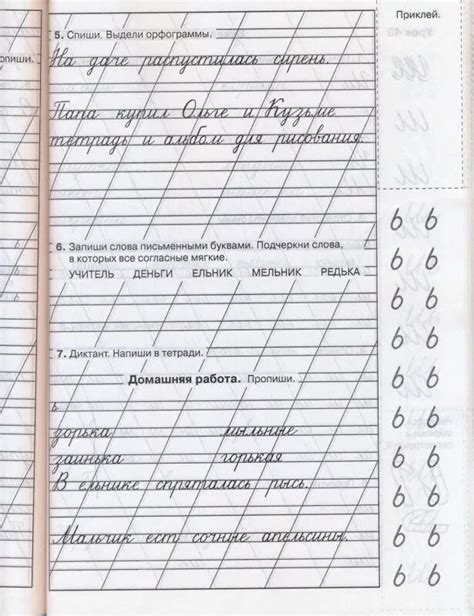 Приклей.
5. Спиши. Выдели орфограммы.
На даче распустилась сирень.
Папа купил Ольге и Кузьме
тетрадь и альбом для рисования.
6. Запиши слова письменными буквами. Подчеркни слова,
в которых все согласные мягкие.
УЧИТЕЛЬ ДЕНЬГИ ЕЛЬНИК МЕЛЬНИК РЕДЬКА
7. Диктант. Напиши в тетради.
Домашняя работа. Пропиши.
ь
зорька мыльные
заинька горькая
В ельнике спряталась рысь.
Мальчик ест сочные апельсины.
6 6
6 6
6 6
6 6
6 6
6 6
6 6
6 6
6 6
6 6